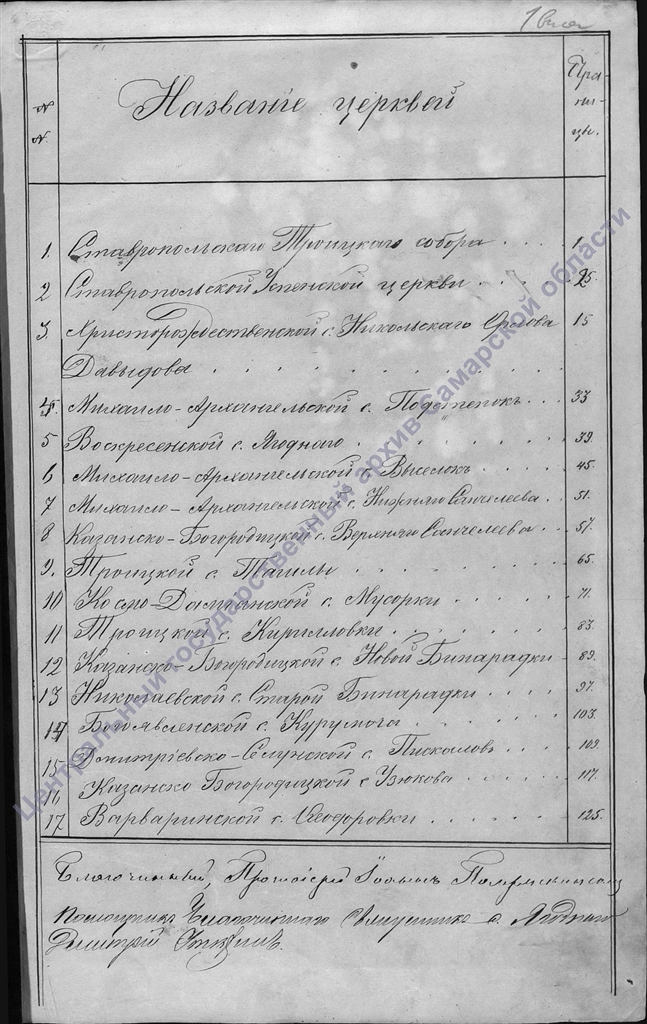 №№ Названіе церквей Страницы.
1. Ставропольскаго Троицкаго собора . . . 1
2 Ставропольской Успенской церкви . . . 25.
3. Христорождественской с. Никольскаго Орлова 15
Давыдова . . . . . . . . .
4. Михаило-Архангельской с. Подстепокъ . . . 33
5 Воскресенской с. Ягоднаго . . . . . 39.
6 Михаило-Архангельской с. Выселокъ . . . . 45.
7 Михаило-Архангельской с. Нижняго Санчелеева . . 51.
8 Казанско-Богородицкой с. Верхняго Санчелеева . . 57.
9. Троицкой с. Ташлы . . . . . . 65.
10 Космо-Даміанской с. Мусорки . . . . . 71.
11 Троицкой с. Кирилловки . . . . . . 83.
12 Казанско-Богородицкой с. Новой Бинарадки - 89.
13 Николаевской с. Старой Бинарадки . . . . 97.
14 Богоявленской с. Курумоча . . . . . 103.
15 Димитріевско-Селунской с. Пискаловъ . . . 109.
16 Казанско Богородицкой с Узюкова . . . . 117.
17 Варваринской с. Ѳеодоровки . . . . . 125.
Благочинный, Протоіерей Іоаннъ
Помощникъ Благочиннаго с.
Димитрій
Центральный государственный архив Самарской области